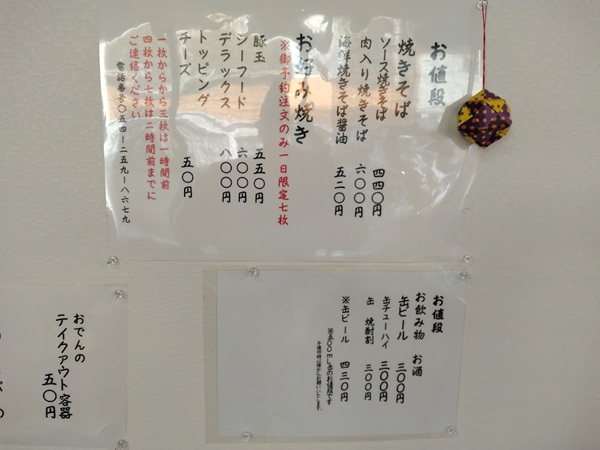 お値段
焼きそば
ソース焼きそば 四四〇円
肉入り焼きそば 六〇〇円
海鮮焼きそば醤油 五二〇円
お好み焼き
※御予約注文のみ一日限定七枚
豚玉 五五〇円
シーフード 六〇〇円
デラックス 八〇〇円
トッピング
チーズ 五〇円
一枚からから三枚は一時間前
四枚から七枚は二時間前までに
ご連絡ください
電話番号〇五四ー二五九ー八六七九
お値段
お飲み物 お酒
缶ビール 三〇〇円
缶チューハイ 三〇〇円
缶 焼酎割 三〇〇円
※缶ビール 四三〇円
※五〇〇mL缶のお値段です
おでんの
テイクアウト容器
五〇円